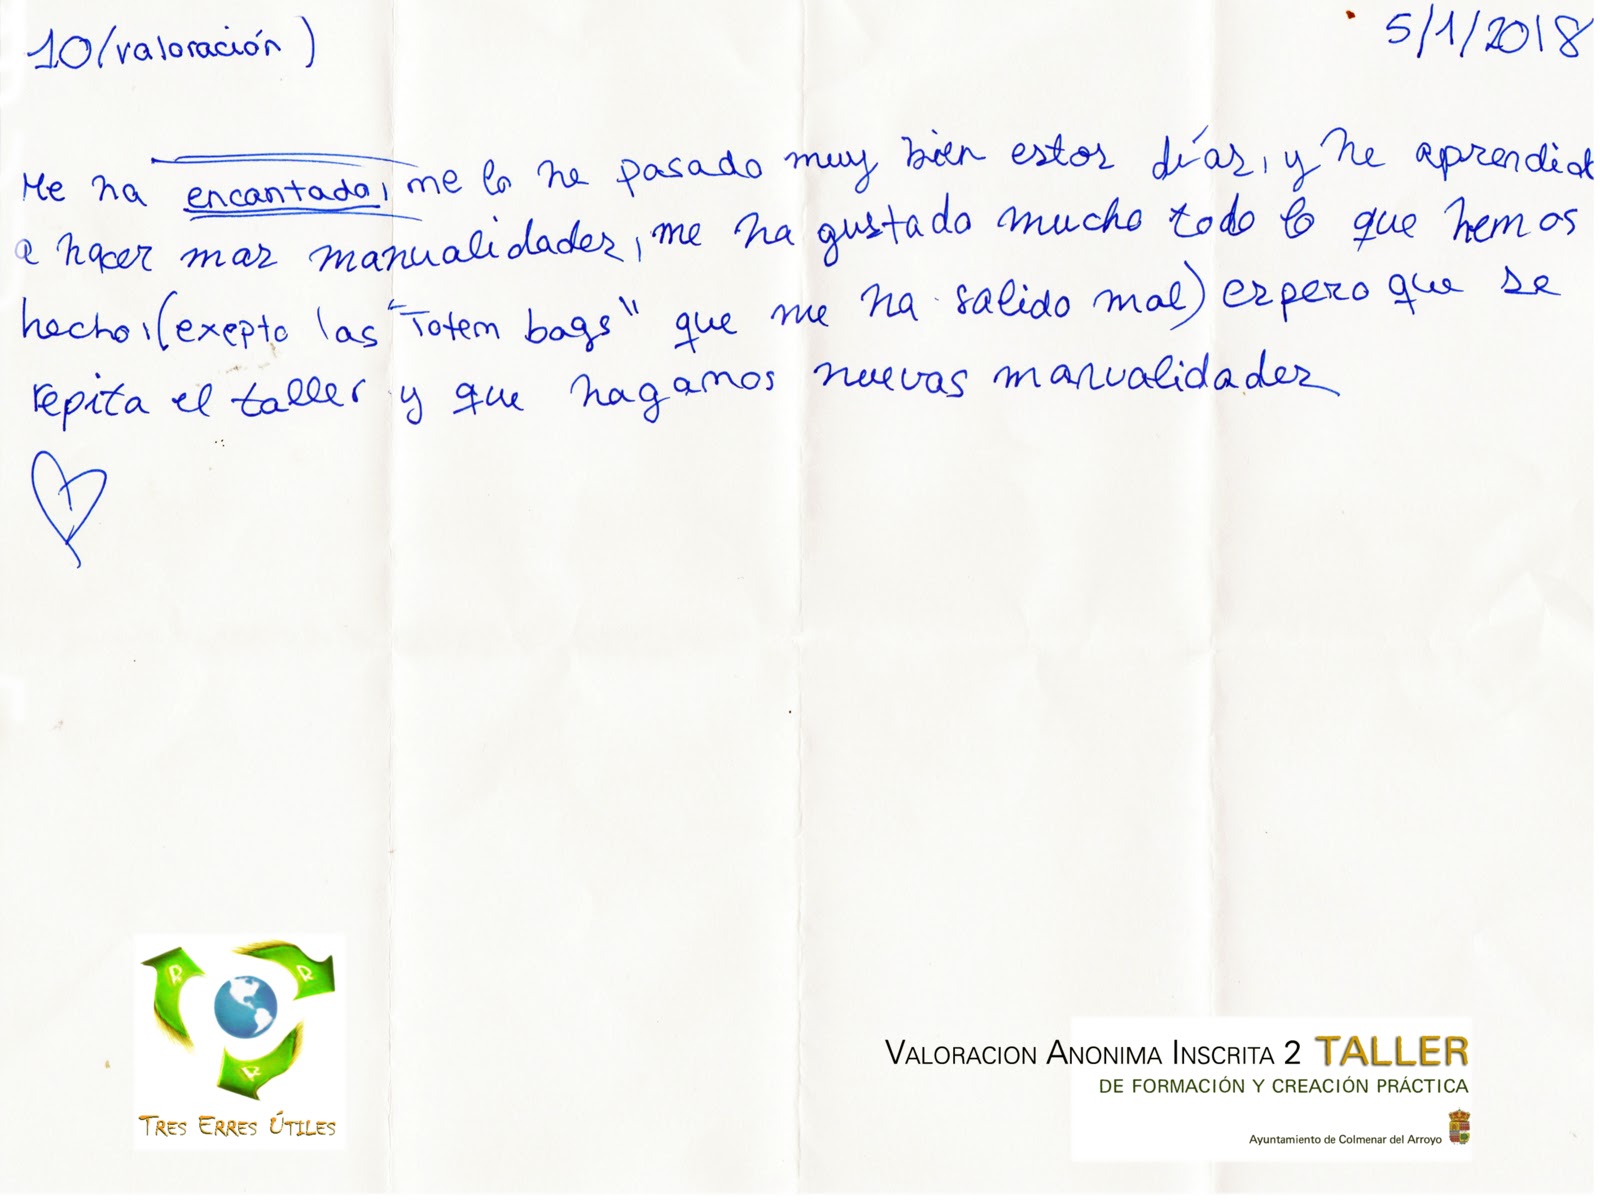 10/valoración)
5/1/2018
Me ha encantado, me lo he pasado muy bien estos días, y he aprendido
a hacer mas manualidades, me ha gustado mucho todo lo que hemos
hecho, (exepto las "Totem bags" que me ha salido mal) espero que se
repita el taller y que hagamos nuevas manualidades
R
R
R
TRES ERRES ÚTILES
VALORACION ANONIMA INSCRITA 2 TALLER
DE FORMACIÓN Y CREACIÓN PRÁCTICA
Ayuntamiento de Colmenar del Arroyo